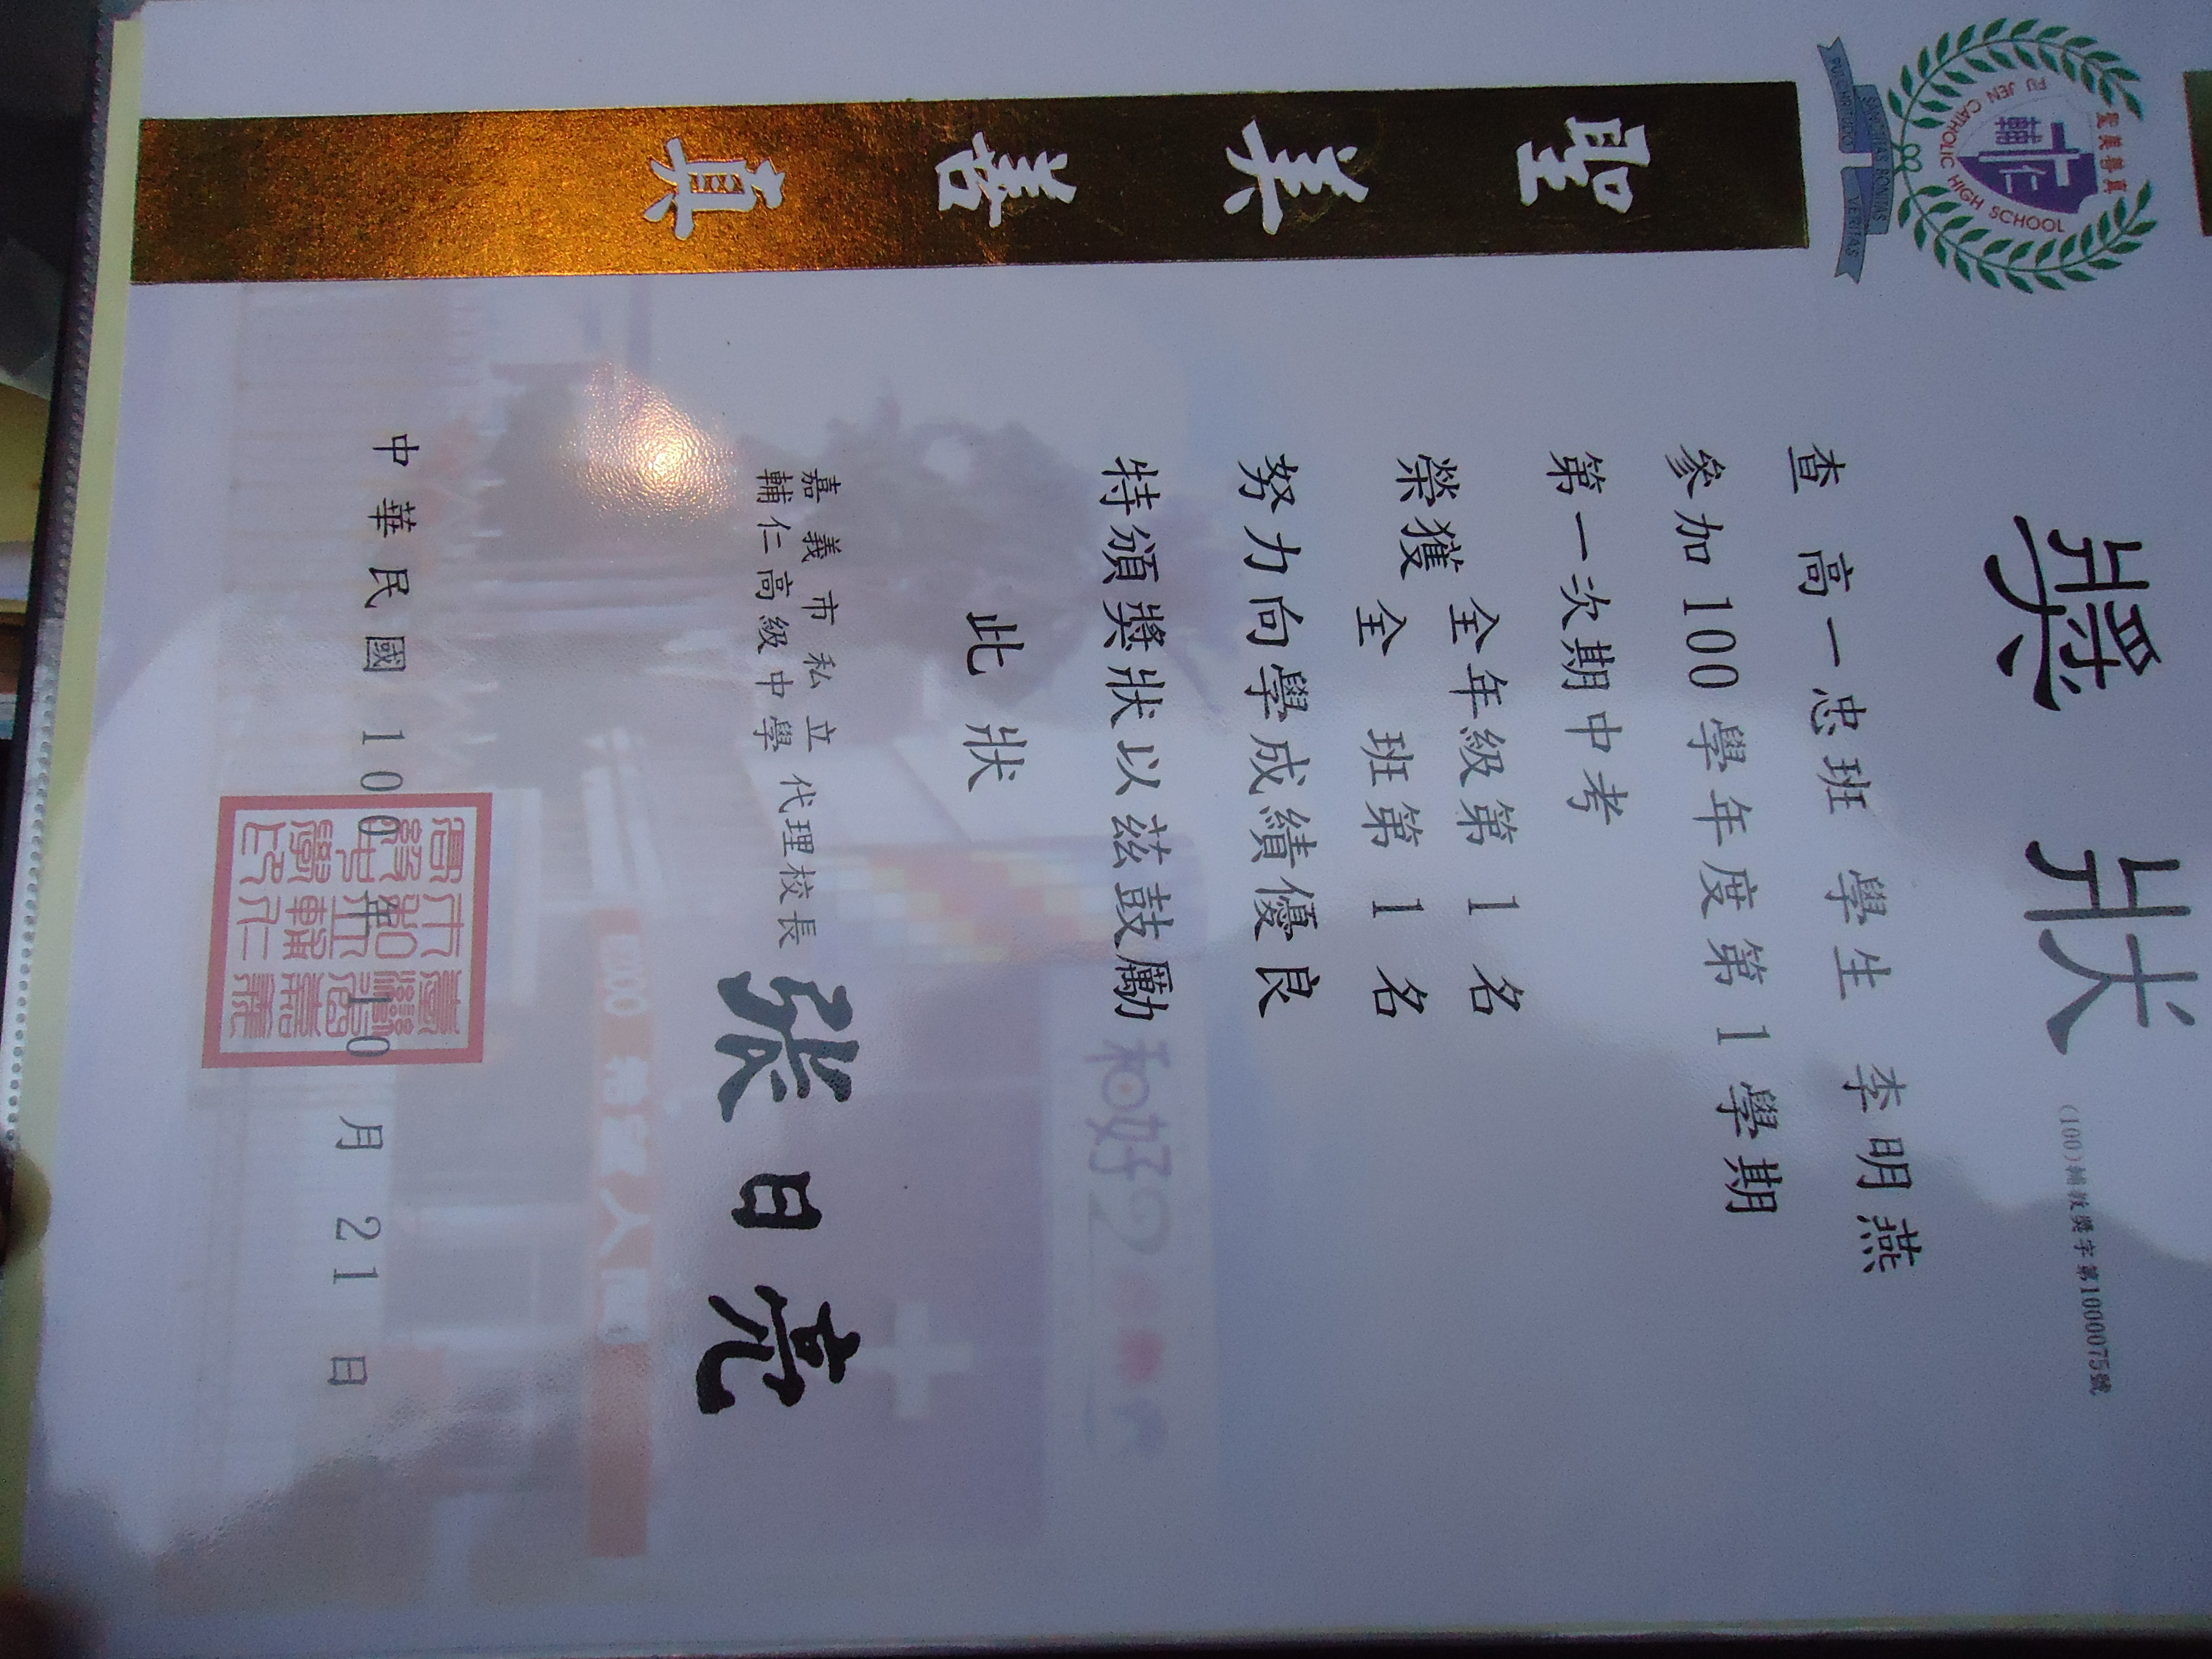 獎狀
(100)輔教獎字第1000075號
聖美善真
FU JEN CATHOLIC HIGH SCHOOL
輔仁
PULCHRITUDO SANCTITAS BONITAS VERITAS
聖
美
善
真
查 高一忠班 學生 李明燕
參加100學年度第1學期
第一次期中考
榮獲 全年級第 1 名
全 班第 1 名
努力向學成績優良
特頒獎狀以茲鼓勵
此狀
嘉義市私立
輔仁高級中學
代理校長
張日亮
中華民國 100 年 10 月 21 日
和好